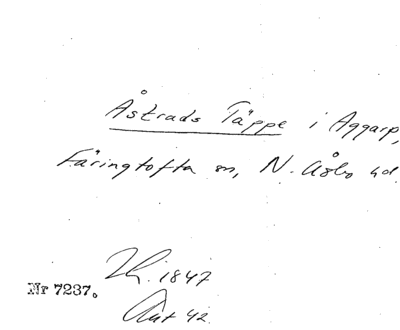 Åstrads Täppe i Aggarp,
Färingtofta sn, N. Åsbo hd.
Lh. 1847
Nr 7237.
Ant 42